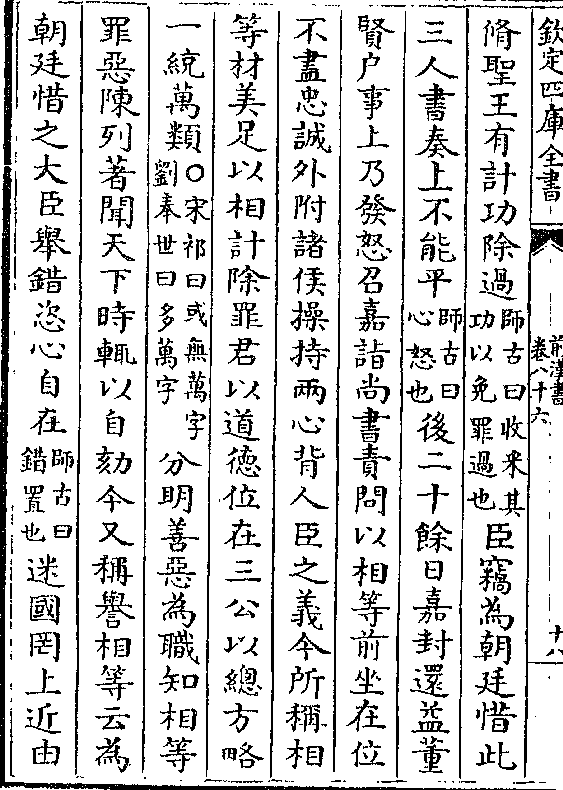 欽定四庫全書
前漢書
卷八十六
十八
脩聖王有計功除過師古曰收采其功以免罪過也臣竊為朝廷惜此
三人書奏上不能平師古曰心怒也後二十餘日嘉封還益董
賢户事上乃發怒召嘉詣尚書責問以相等前坐在位
不盡忠誠外附諸侯操持兩心背人臣之義今所稱相
等材美足以相計除罪君以道德位在三公以總方略
一統萬類○宋祁曰或無萬字劉奉世曰多萬字分明善惡為職知相等
罪惡陳列著聞天下時輒以自劾今又稱譽相等云為
朝廷惜之大臣舉錯恣心自在師古曰錯置也迷國罔上近由